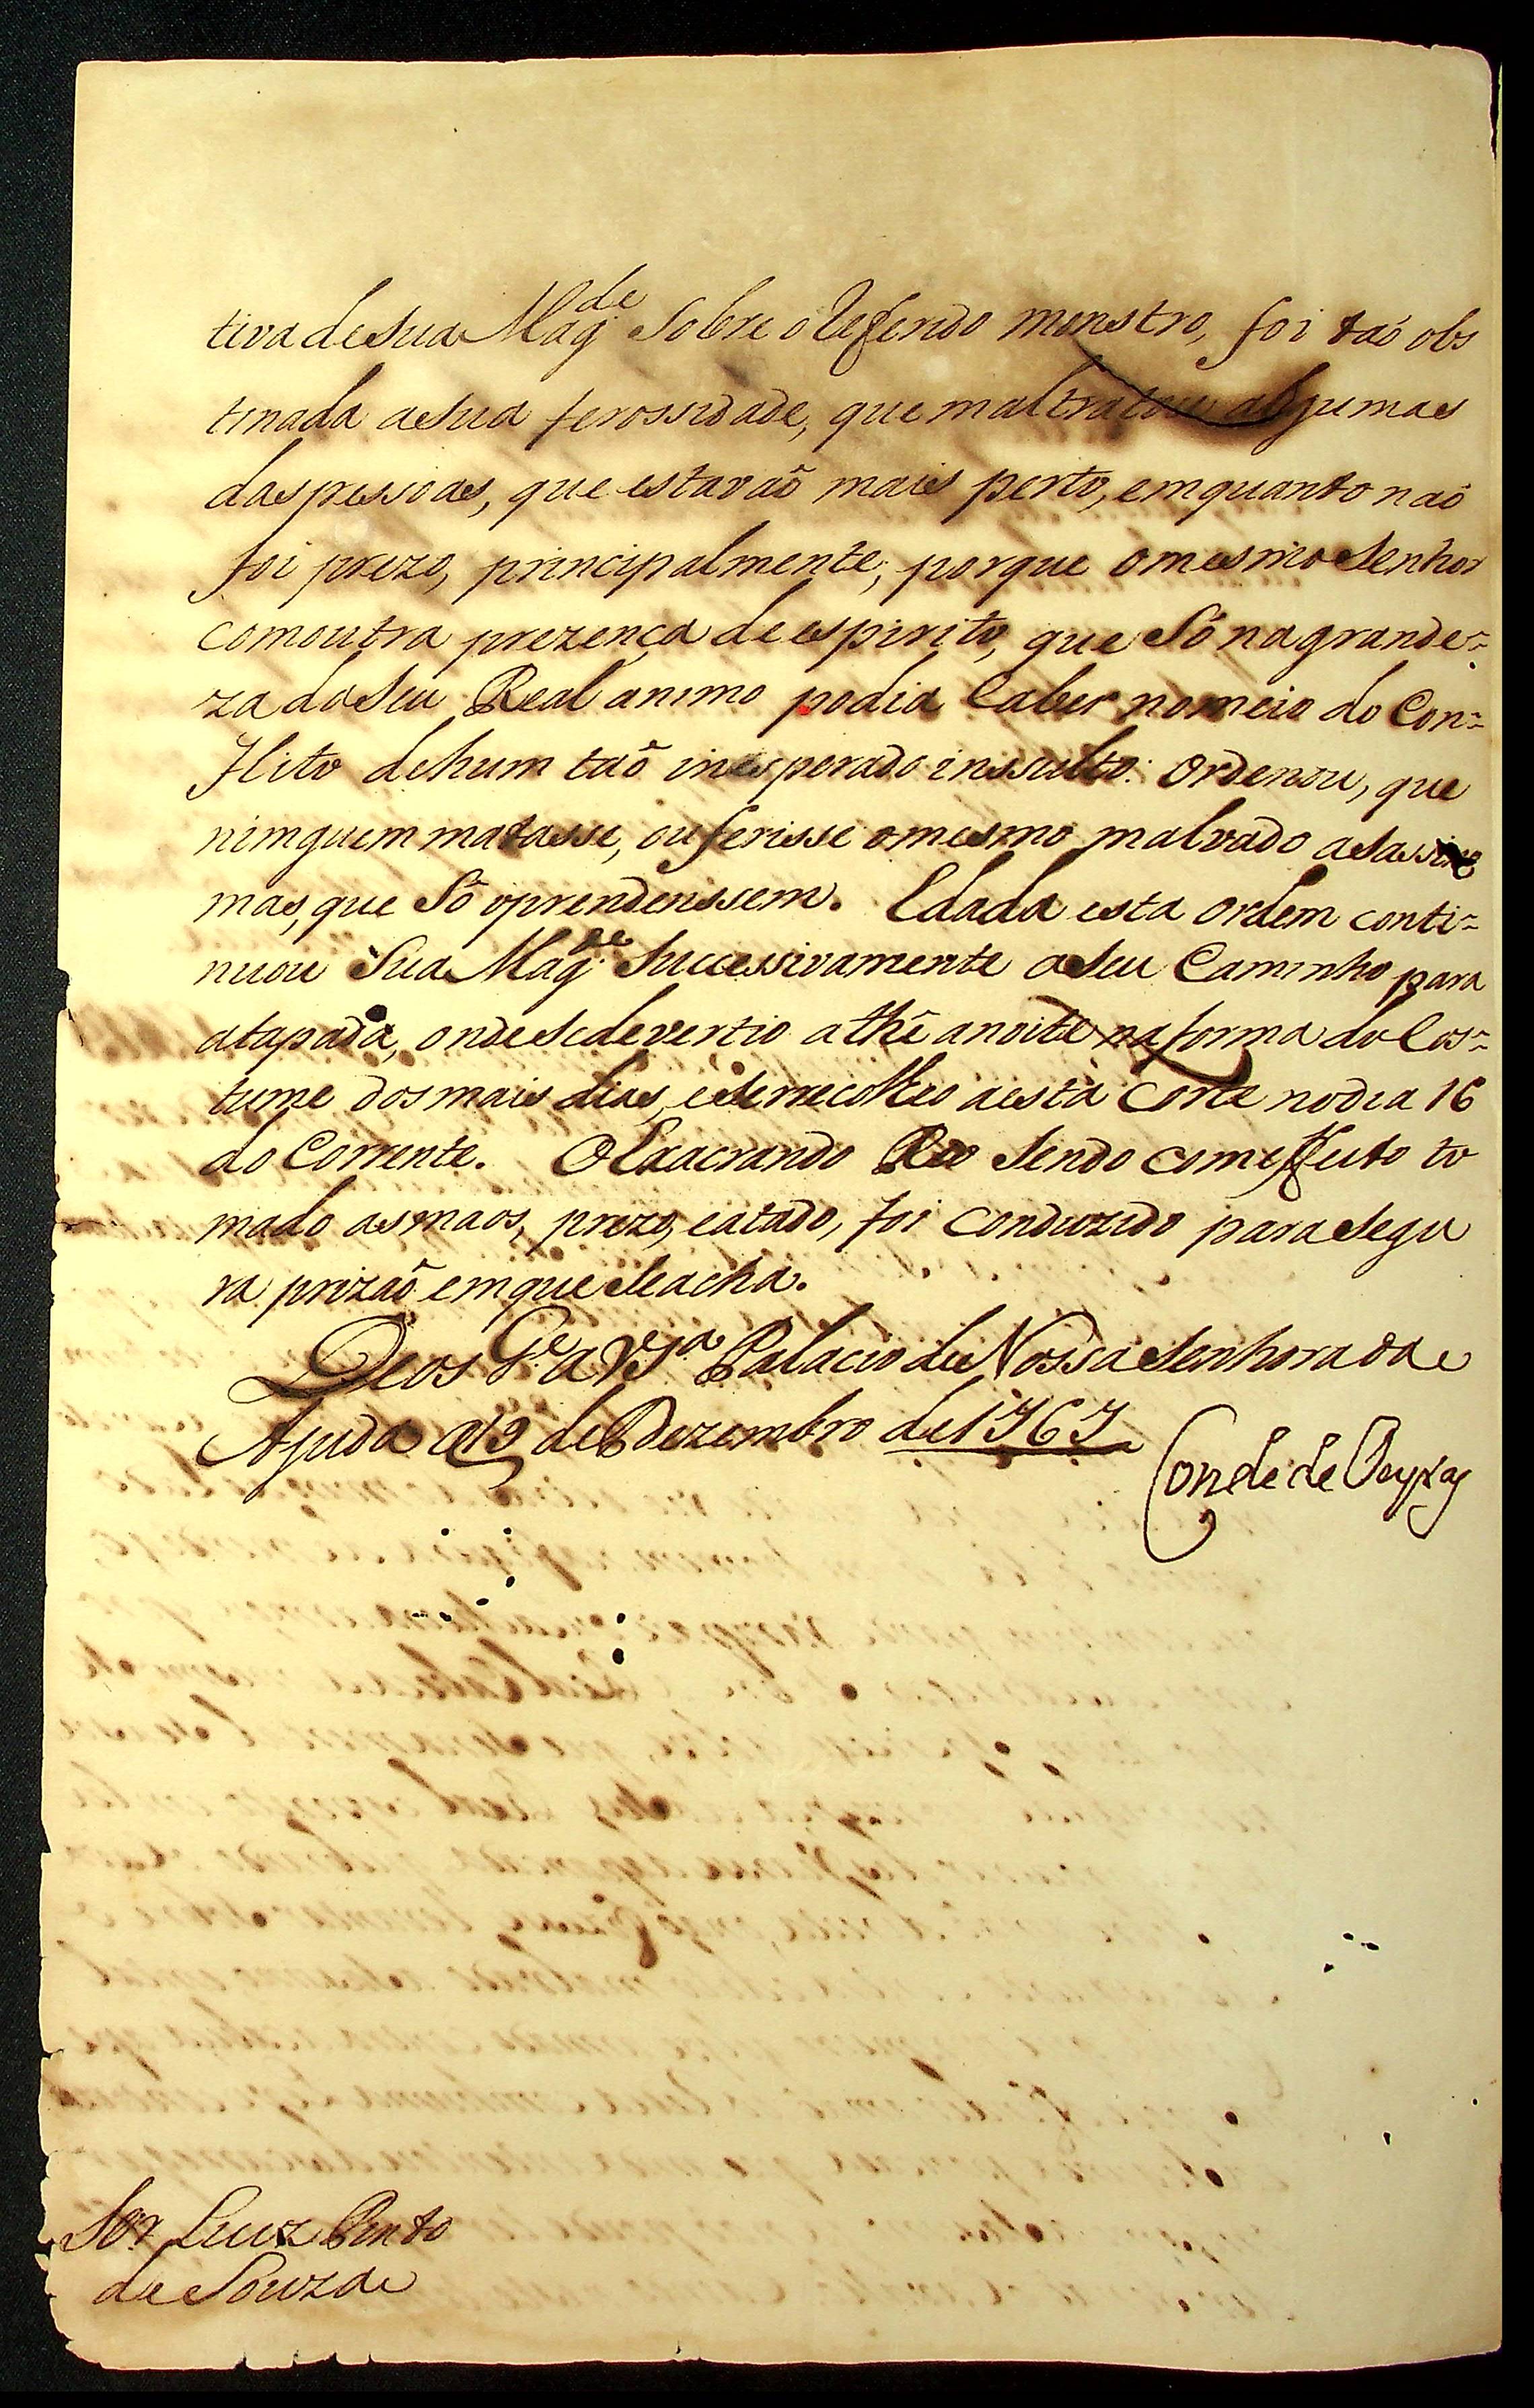 tiva de sua Mag.de sobre o refferido monstro, foi taõ obs
tinada a sua ferossidade, que maltratou algumas
das pessoas, que estavaõ mais perto, emquanto naõ
foi prezo, principalmente, porque o mesmo Senhor
com outra prezença de espirito, que Só na grande=
za do Seu Real animo podia Caber no meio do Con=
flito de hum taõ inesperado inssulto: Ordenou, que
nimguem matasse, ou ferisse o mesmo malvado asassino
mas, que Só o prendenssem. E dada esta ordem conti=
nuou Sua Mag.de Successivamente o Seu Caminho para
a tapada, onde se devertio athê a noite na forma do Cos=
tume dos mais dias, e se rrecolheo a esta Corte no dia 16
do Corrente. O Exacrando Reo Sendo com effeito to
mado as maos, prezo, e atado, foi conduzido para segu
ra prizaõ em que se acha.
Deos G.e a V.S.a Palacio de Nossa Senhora da
Ajuda a 19 de Dezembro de 1767
Conde de Oeyras
Sõr Luiz Pinto
de Souza